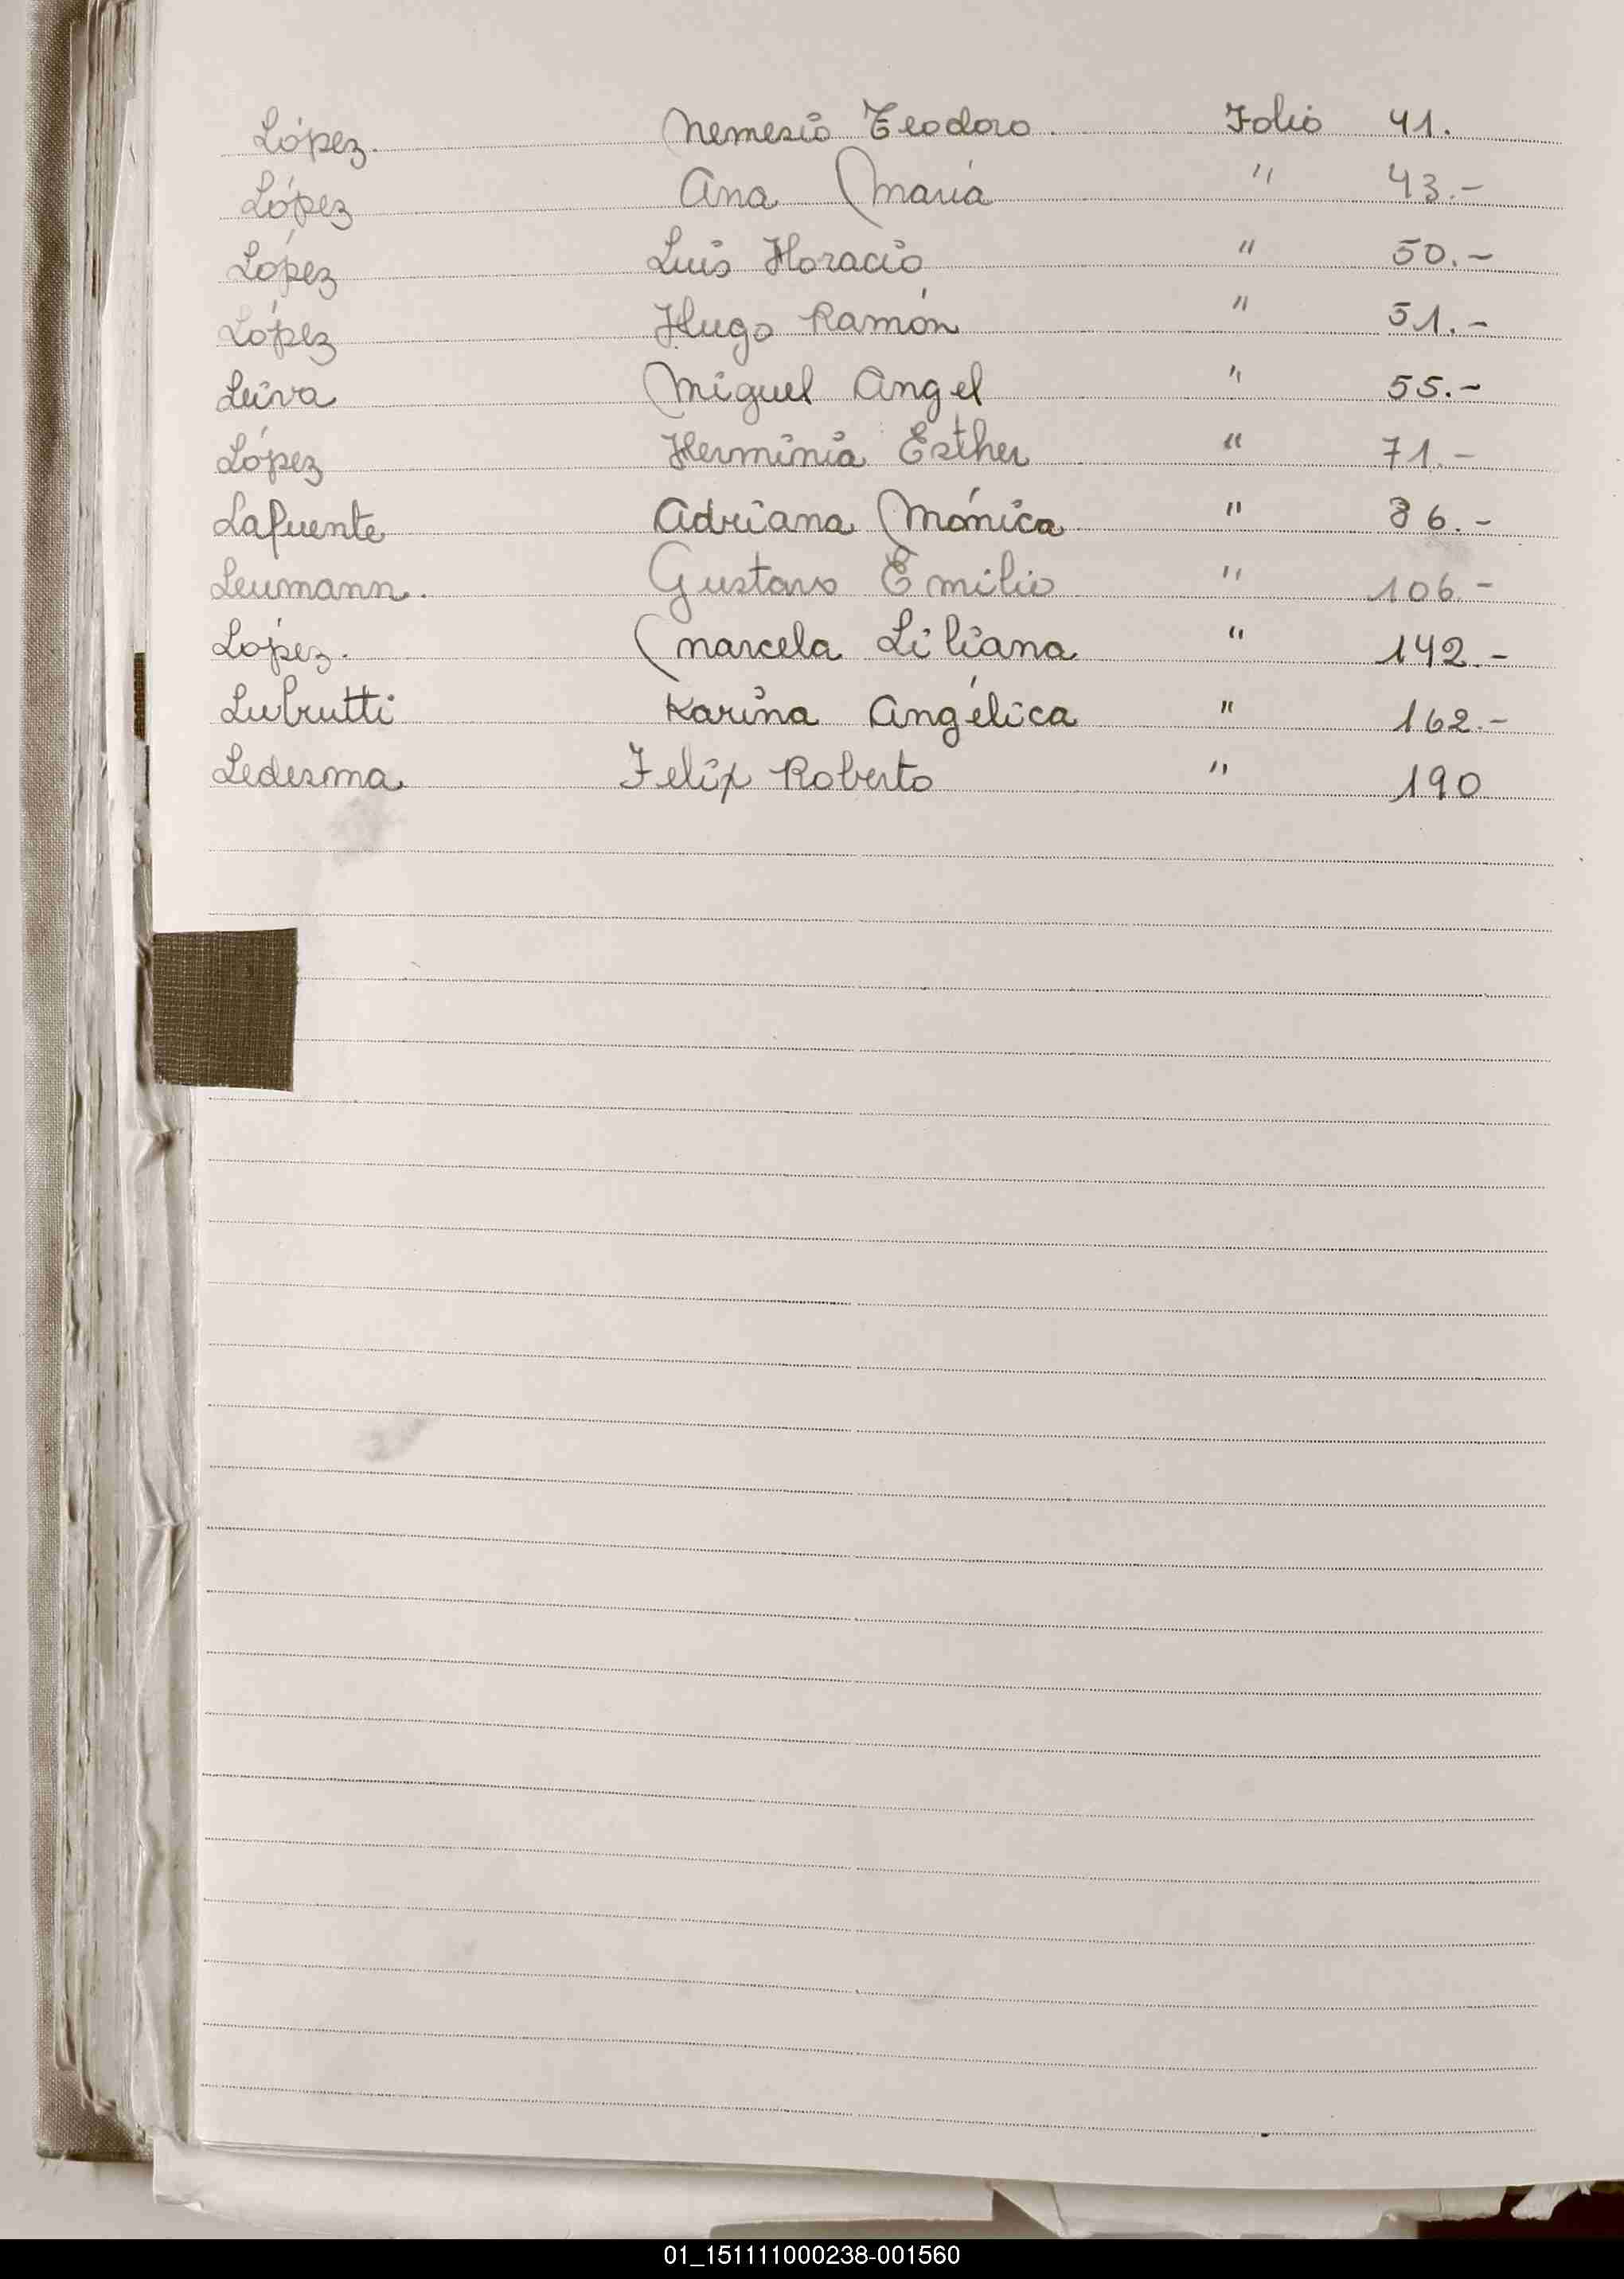 López. Nemesio Teodoro. Folio 41.
López Ana María " 43.-
López Luis Horacio " 50.-
López Hugo Ramón " 51.-
Leiva Miguel Angel " 55.-
López Herminia Esther " 71.-
Lafuente Adriana Mónica " 86.-
Leumann. Gustavo Emilio " 106.-
López. Marcela Liliana " 142.-
Lubrutti Karina Angélica " 162.-
Ledesma Felix Roberto " 190
01_151111000238-001560